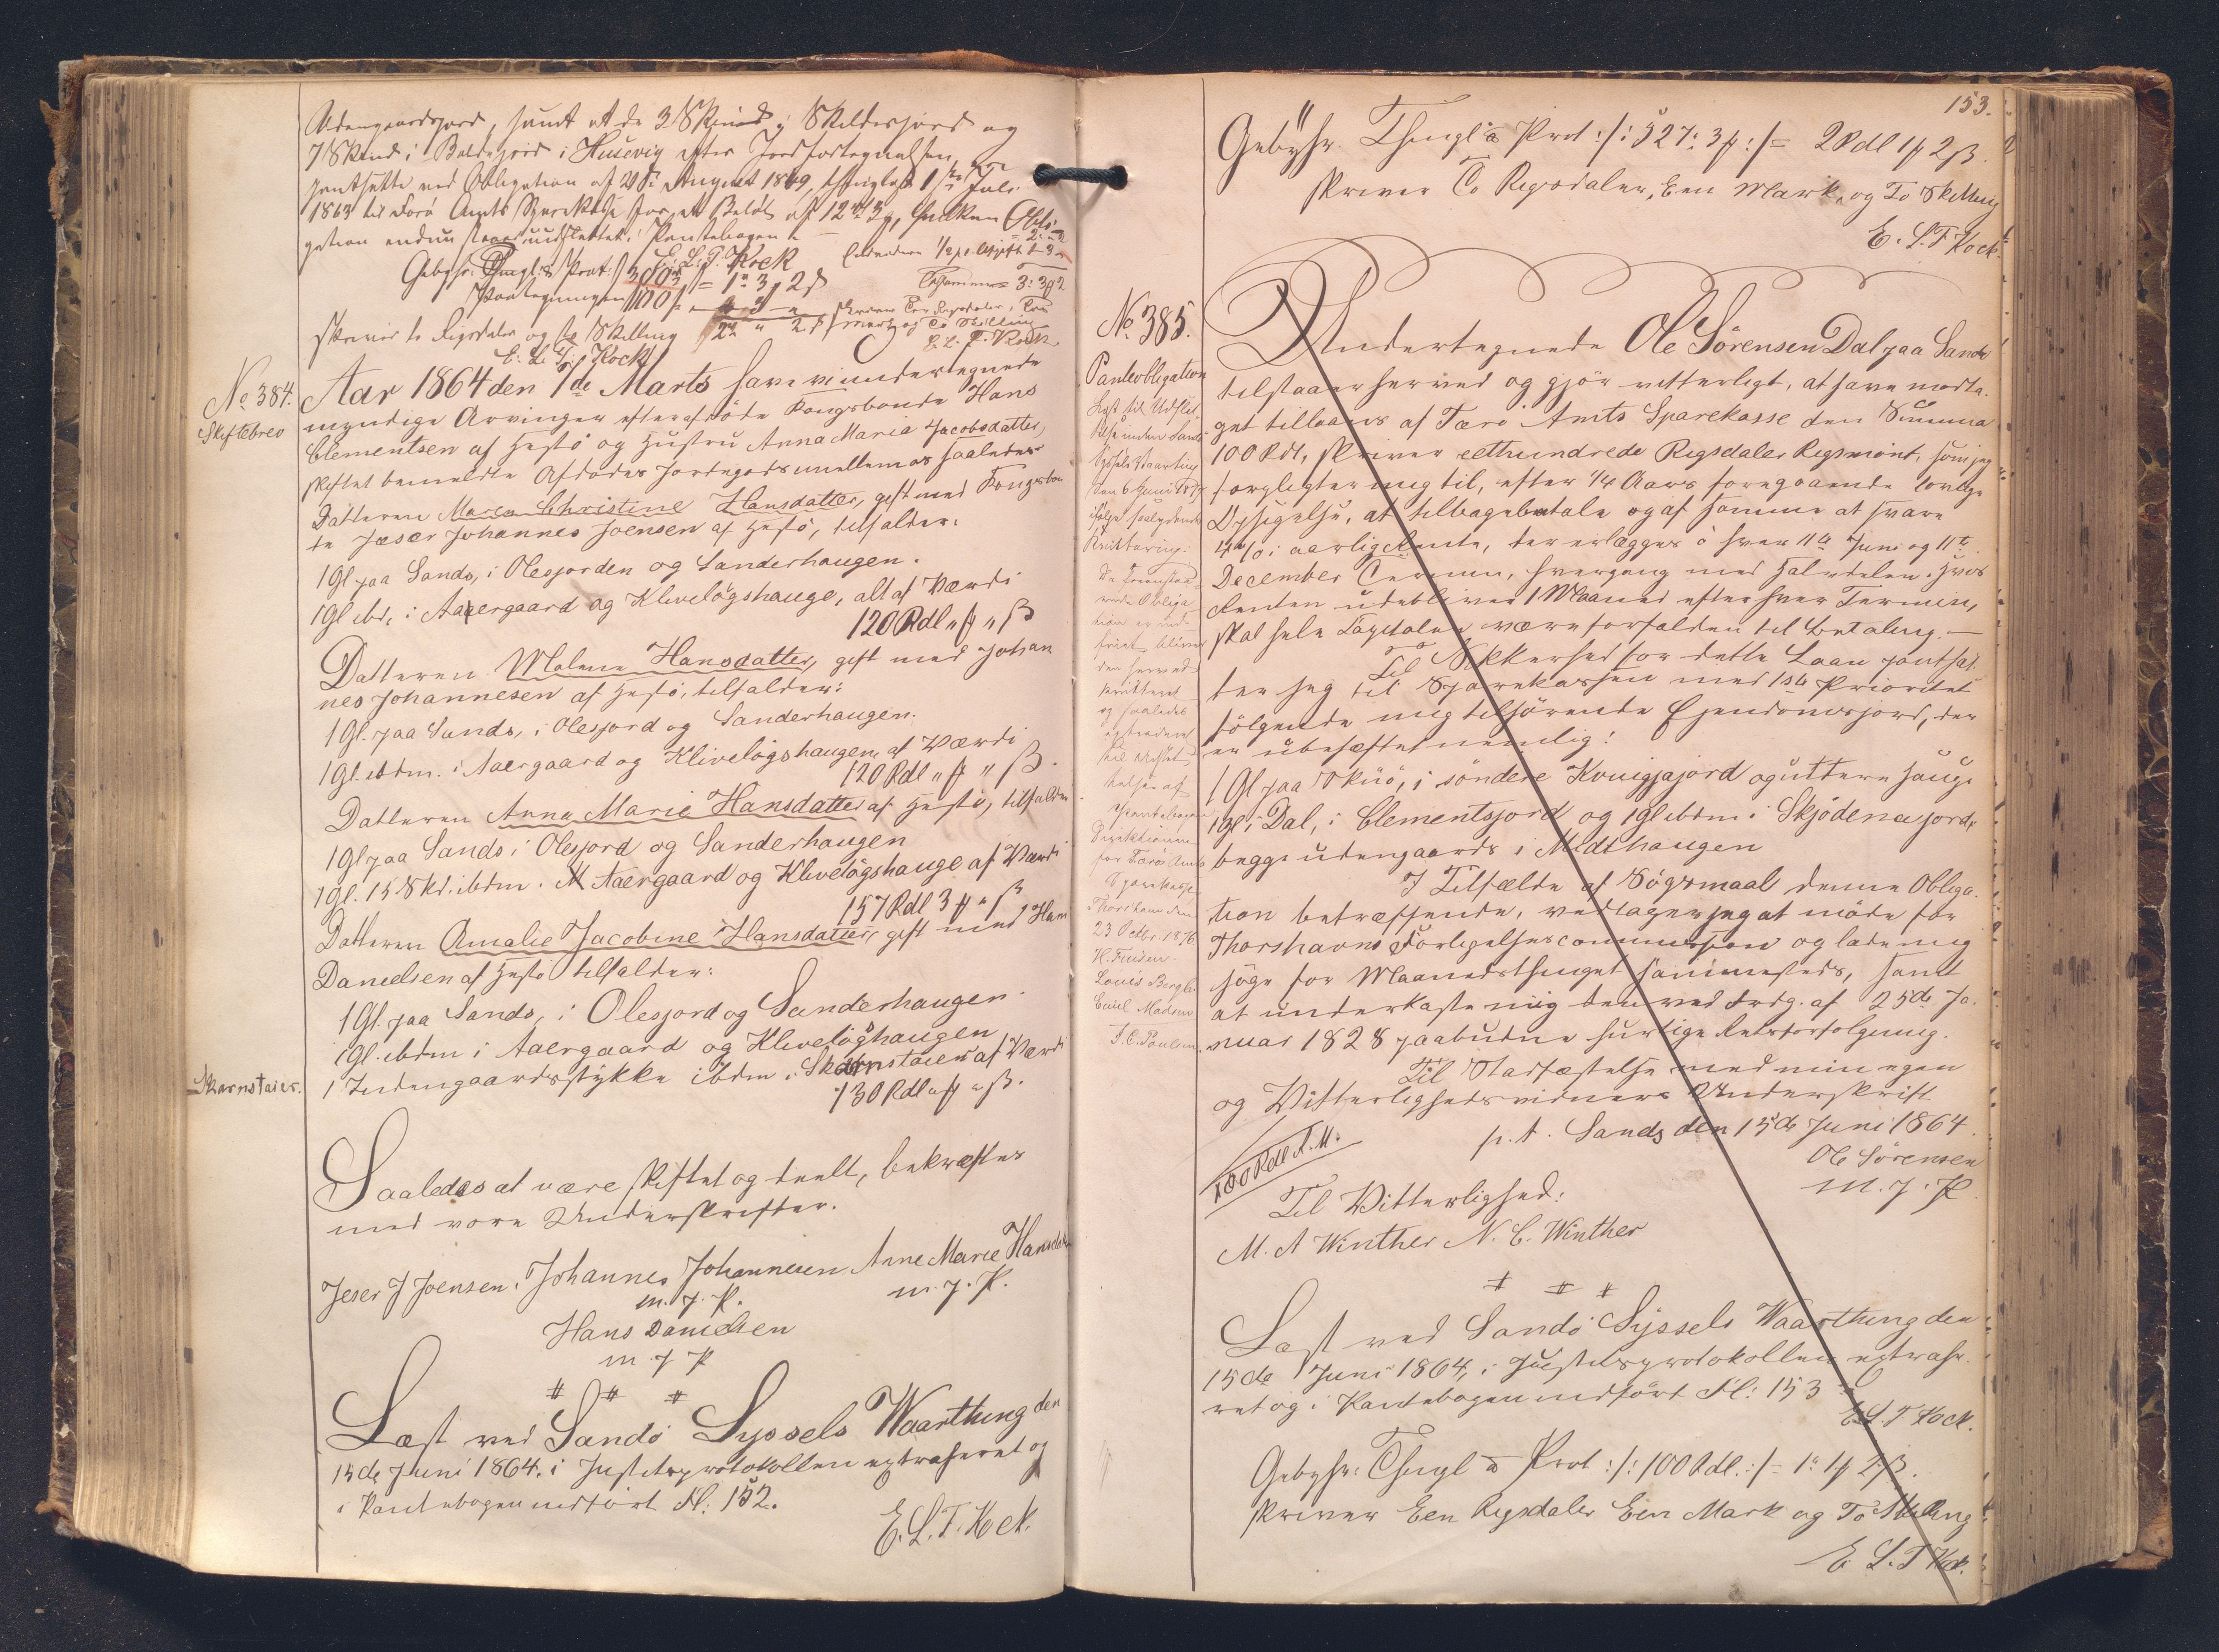 Udengaardsjord, samt at de 3 Skind i Skildersjord og
7 Skind i Boldesjord i Husevig efter Jordfortegnelsen, er
pantsatte ved Obligation af 21de August 1849, thinglæst 1ste Juli
1863 til Færø Amts Sparekasse for et Beløb af 12 rd 3 , hvilken Obli-
gation endnu staaer uudslettet i Pantebogen.
E. L. T. Kock
Gebyhr. Thingl. & Prot.
= 1 rd 3 2 ß
Tilsammen 3: 3 2
Paategningen
skriver to Rigsdaler og to Skilling
E. L. T. Kock
E. L. T. Kock
No 384.
Skiftebrev
Aar 1864 den 1de Marts have vi undertegnede
myndige Arvinger efter afdöde Kongsbonde Hans
Clementsen af Hestö og Hustru Anna Maria Jacobsdatter,
skiftet bemeldte Afdödes Jordegods mellem os saaledes:
Datteren Maren Christine Hansdatter, gift med Kongsbon
de Jæser Johannes Joensen af Hestö, tilfalder:
1 Gl paa Sands, i Olesjorden og Sanderhaugen.
1 Gl ibd, i Aaergaard og Kliveløgshauge, alt af Værdi
120 Rdl „ ₰ „ ß
Datteren Malene Hansdatter, gift med Johan
nes Johannesen af Hestö, tilfalder:
1 Gl. paa Sands, i Olesjord og Sanderhaugen.
1 Gl. ibdm. i Aaergaard og Kliveløgshaugen, af Værdi
120 Rdl „ ₰ „ ß.
Datteren Anna Marie Hansdatter af Hestö, tilfalder
1 Gl paa Sands i Olesjord og Sanderhaugen
1 Gl. 15 Skd. ibdm. i Aaergaard og Kliveløgshauge af Værdi
157 Rdl 3 ₰ „ ß
Datteren Amalie Jacobine Hansdatter, gift med Hans
Danielsen af Hestö tilfalder:
1 Gl. paa Sands, i Olesjord og Sanderhaugen.
1 Gl. ibdm i Aaergaard og Kliveløghaugen
Skarnstaier.
1 Indengaardsstykke ibdm i Skarnstaier af Værdi
130 Rdl „ ₰ „ ß.
Saaledes at være skiftet og deelt, bekræftes
med vore Underskrifter.
Jeser J Joensen. Johannes Johannesen Anne Marie Hansdatter
m. f. P. m. f. P.
Hans Danielsen
m f P
# # #
Læst ved Sandö Syssels Vaarthing den
15de Juni 1864. i Justitsprotokollen extraheret og
i Pantebogen indfört Fl: 152.
E. L. T. Kock.
153.
Gebyhr Thingl & Prot :/: § 27: 3 ₰ :/= 2 Rdl 1 ₰ 2 ß.
skriver To Rigsdaler, Een Mark, og To Skilling
E. L. T Kock.
No 385.
Panteobligation
Læst til Udslet
telse inden Sandö
Syssels Vaarting
den 6 Juni 1877
ifölge saalydende
Kvittering:
Da Foranstaa
ende Obliga
tion er ind
friet bliver
den herved
kvitteret
og saaledes
extraderet
til Udslet
telse af
Pantebogen
Direktionen
for Færø Amts
Sparekasse
Thorshavn den
23 Octbr 1876
H. Finsen.
Louis Bergh.
Emil Madsen
F. C. Poulsen.
Undertegnede Ole Sörensen Dal paa Sandö
tilstaaer herved og gjör vitterligt, at have modta-
get tillaans af Færö Amts Sparekasse den Summa
100 Rdl, skriver eethundrede Rigsdaler Rigsmönt, som jeg
forpligter mig til, efter 1/4 Aars foregaaende lovlige
Opsigelse, at tilbagebetale og af samme at svare
4 % i aarlig Rente, der erlægges i hver 11te Juni og 11te
December Termin, hvergang med Halvdelen. Hvis
Renten udebliver 1 Maaned efter hver Termin,
skal hele Capitalen være forfalden til Betaling. —
Til Sikkerhed for dette Laan pantsæt-
ter jeg til Sparekassen med 1ste Prioritet
fölgende mig tilhörende Ejendomsjord, der
er ubehæftet nemlig:
1 Gl paa Skuö, i söndere Kvuigjajord og uttere Hauge
1 Gl i Dal, i Clementsjord og 1 Gl ibdm i Skjödenajord,
begge udengaards i Midthaugen
I Tilfælde af Sögsmaal denne Obliga-
tion betræffende, vedtager jeg at möde for
Thorshavns Forligelsescommission og lade mig
söge for Maanedsthinget sammesteds, samt
at underkaste mig den ved Frdg. af 25de Ja-
nuar 1828 paabudne hurtige Retsforfölgning.
Til Stadfæstelse med min egen
og Vitterlighedsvidners Underskrift
p. t. Sands den 15de Juni 1864.
100 Rdl R. M.
Ole Sörensen
m. f. P.
Til Vitterlighed:
M. A Winther N. C. Winther
# # #
Læst ved Sandö Syssels Vaarthing den
15de Juni 1864, i Justitsprotokollen extrahe-
ret og i Pantebogen indfört Fl: 153
E. L. T Kock.
Gebyhr: Thingl & Prot :/: 100 Rdl. :/= 1 rd 1 ₰ 2 ß.
skriver Een Rigsdaler Een Mark og To Skilling
E L. T Kock.